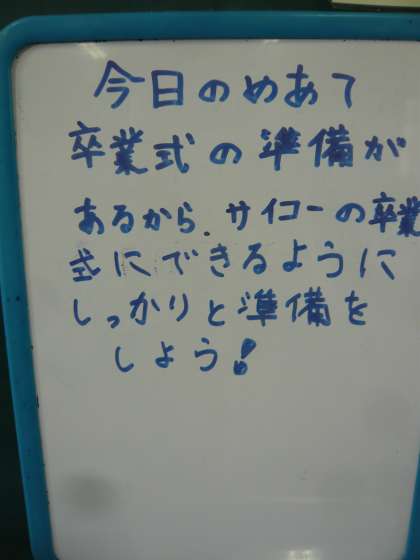 今日のめあて
卒業式の準備が
あるから.サイコーの卒業
式にできるように
しっかりと準備を
しょう!